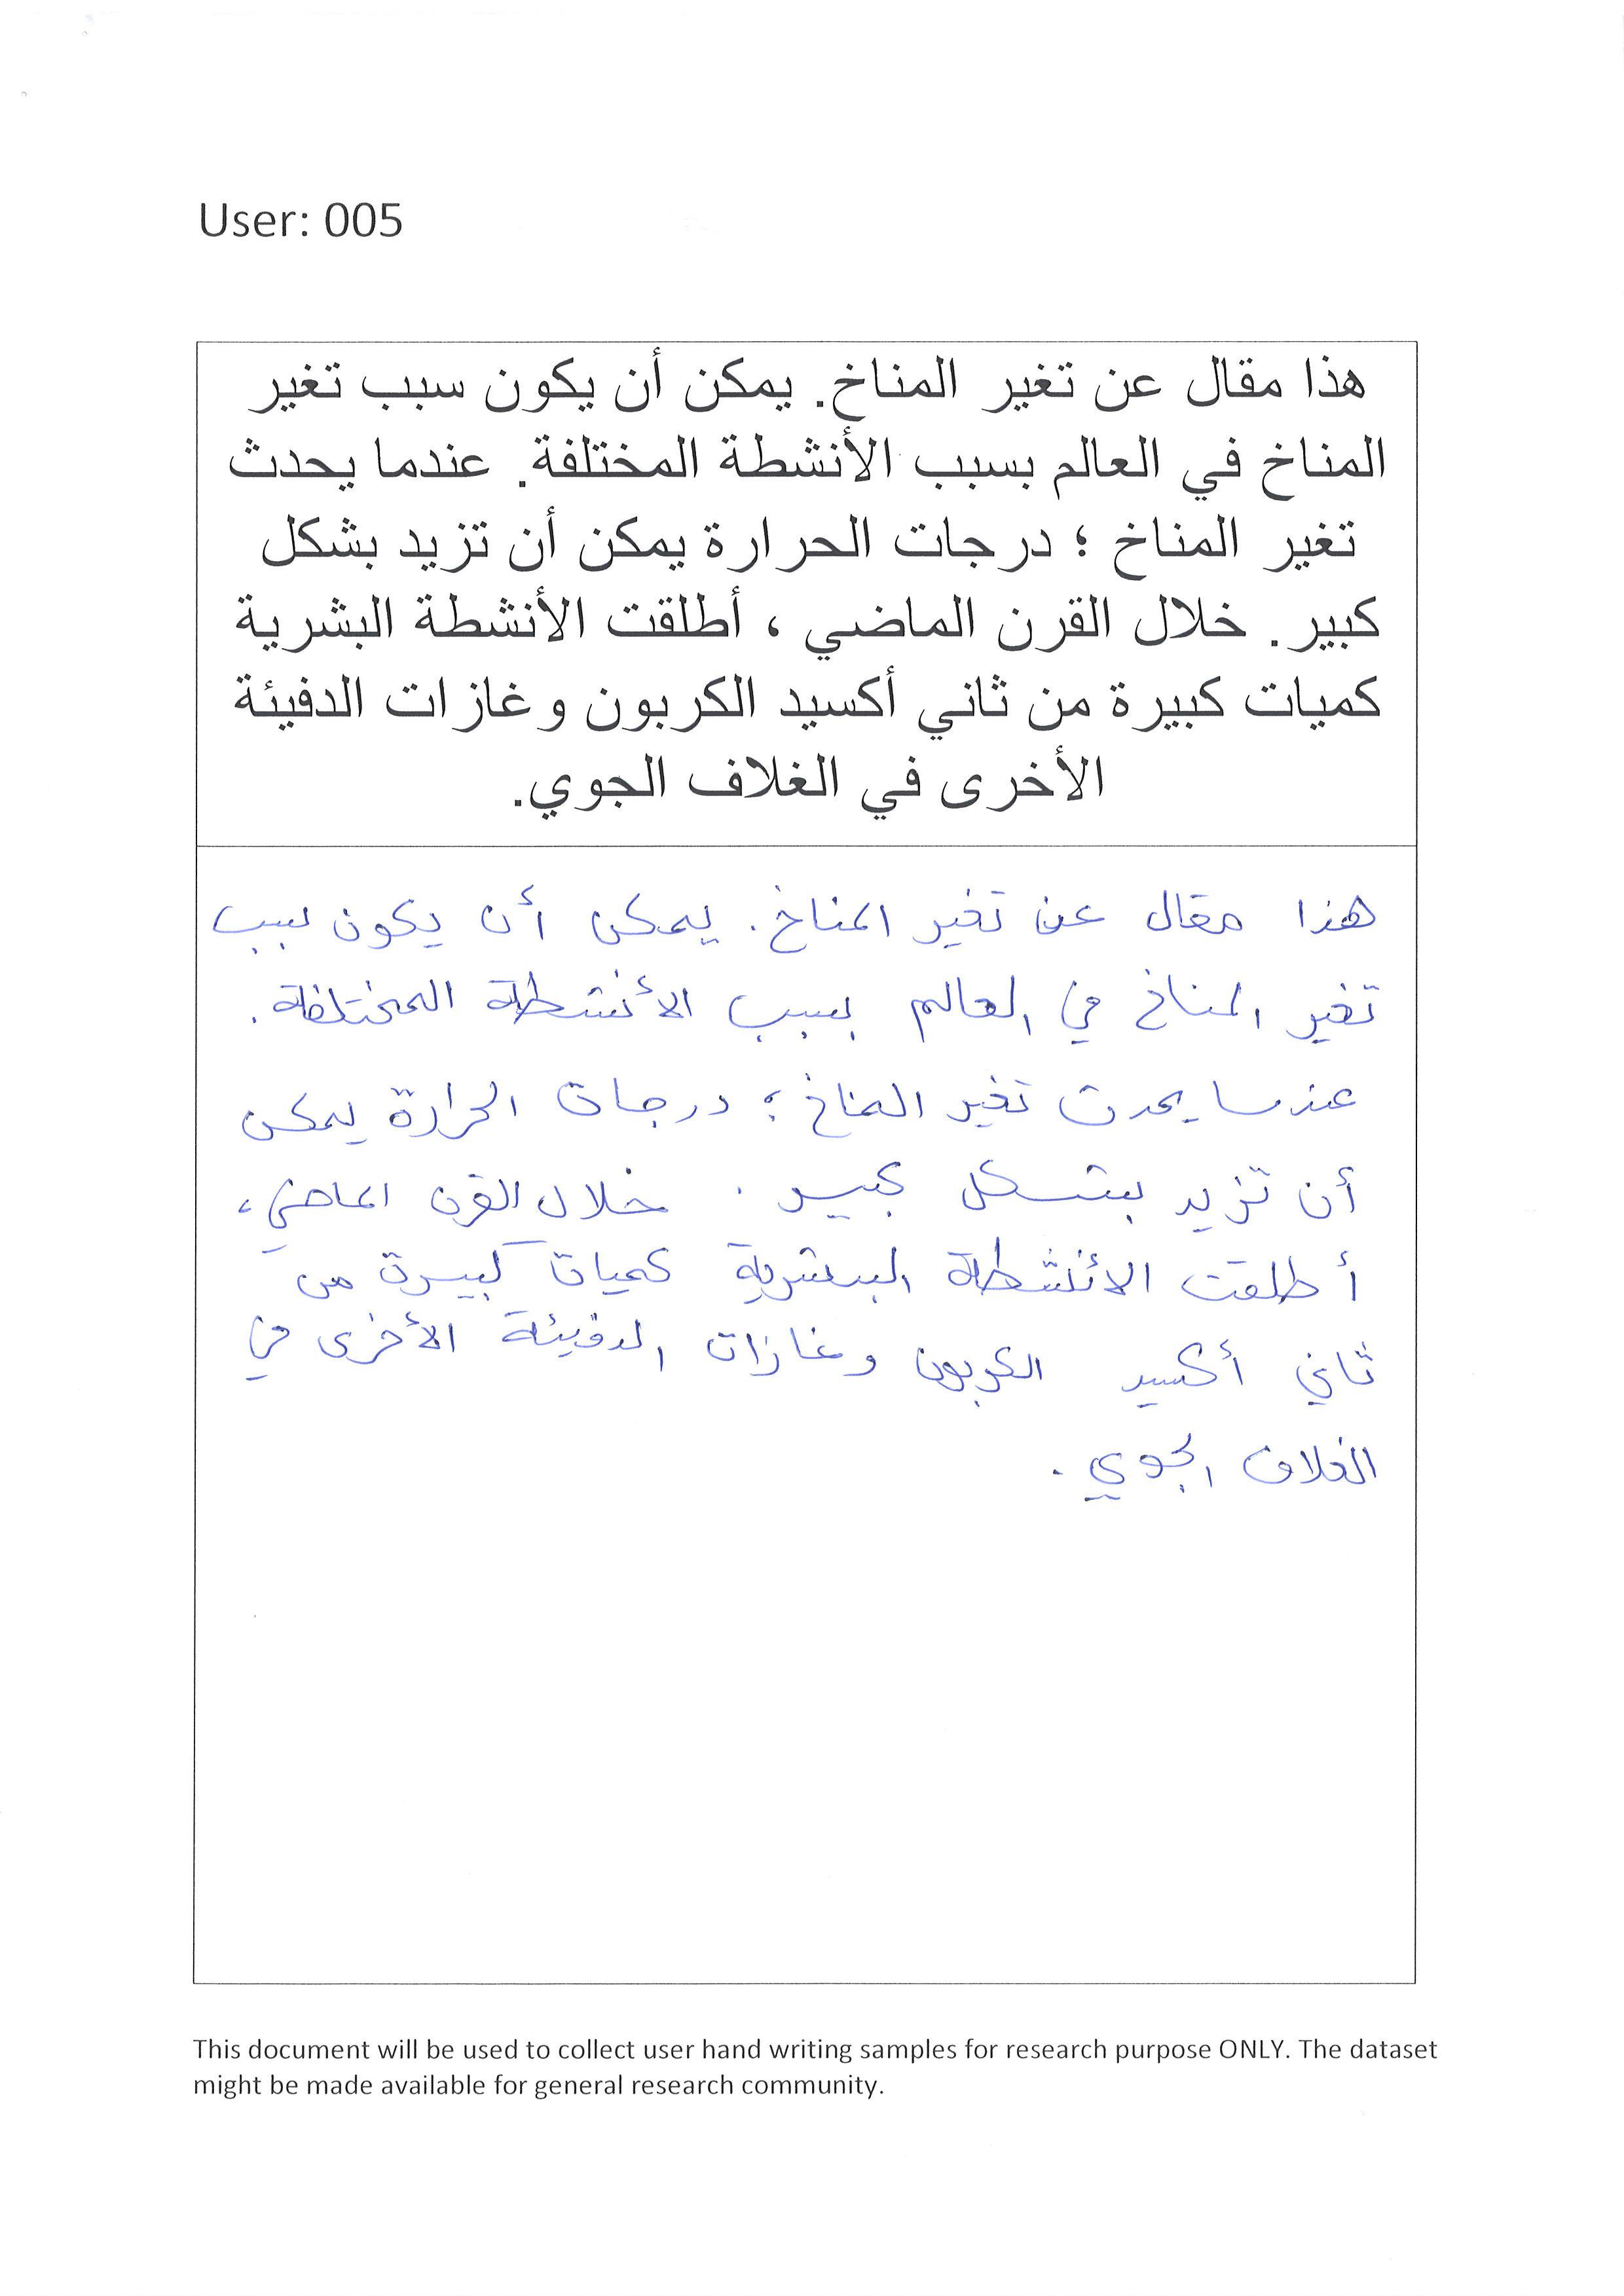 User: 005
هذا مقال عن تغير المناخ. يمكن أن يكون سبب تغير
المناخ في العالم بسبب الأنشطة المختلفة. عندما يحدث
تغير المناخ ؛ درجات الحرارة يمكن أن تزيد بشكل
كبير. خلال القرن الماضي ، أطلقت الأنشطة البشرية
كميات كبيرة من ثاني أكسيد الكربون وغازات الدفيئة
الأخرى في الغلاف الجوي.
هذا مقال عن تغير المناخ. يمكن أن يكون سبب
تغير المناخ في العالم بسبب الأنشطة المختلفة.
عندما يحدث تغير المناخ ؛ درجات الحرارة يمكن
أن تزيد بشكل كبير. خلال القرن الماضي ،
أطلقت الأنشطة البشرية كميات كبيرة من
ثاني أكسيد الكربون وغازات الدفيئة الأخرى في
الغلاف الجوي.
This document will be used to collect user hand writing samples for research purpose ONLY. The dataset
might be made available for general research community.